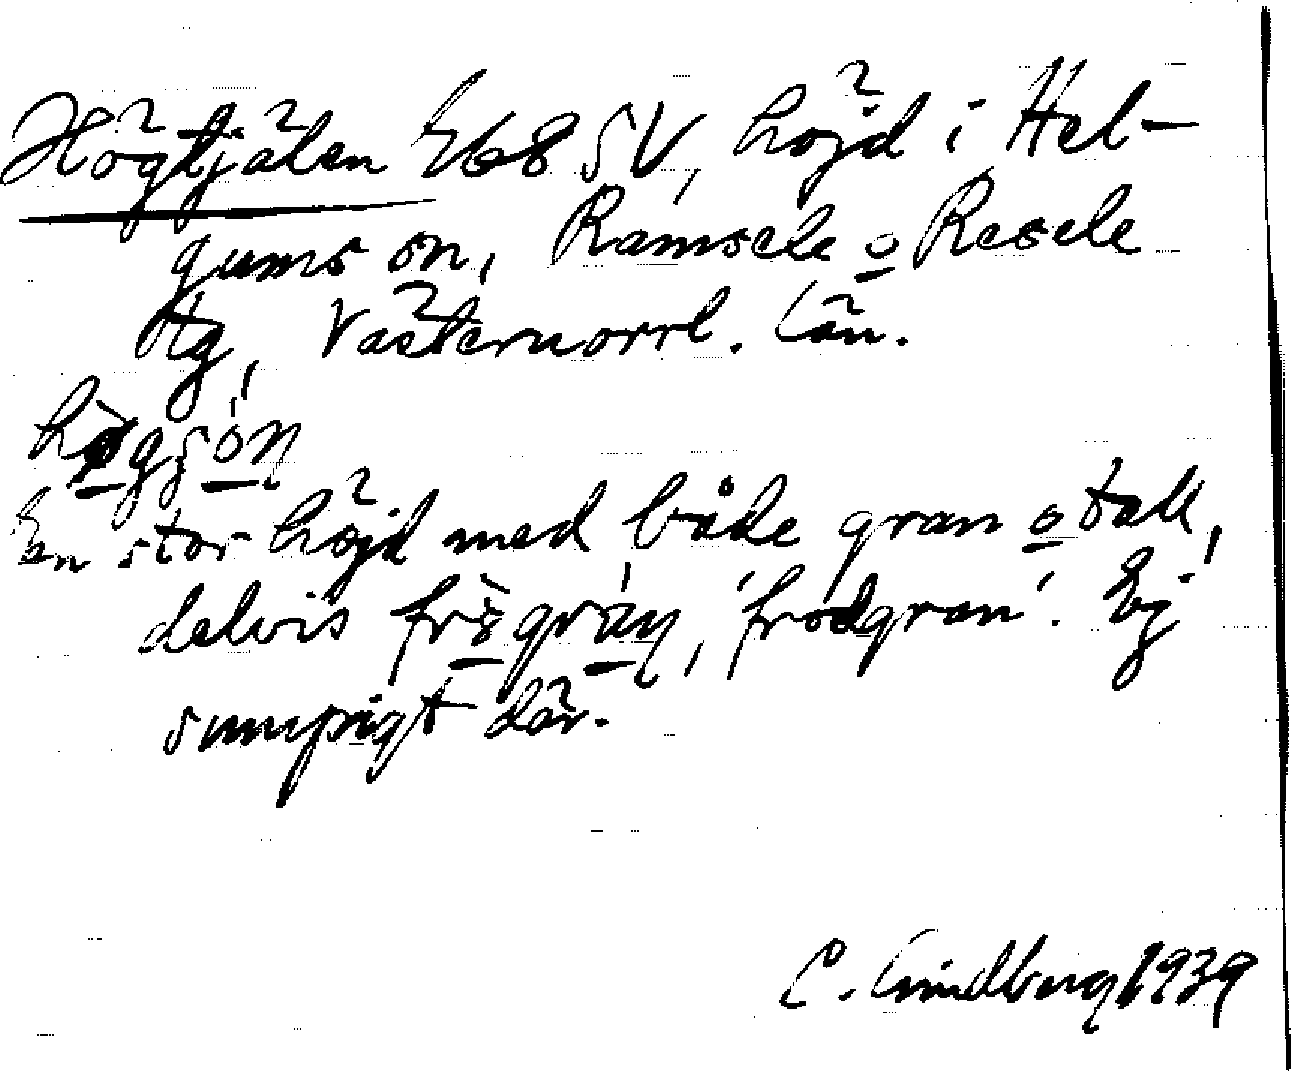 Högtjälen E68 SV, höjd i Hel-
gums sn, Ramsele o Resele
tg, Västernorrl. län.
En stor höjd med både gran o tall,
delvis frögrän, 'frodgran'. Ej
sumpigt där.
C. Lindberg 1939